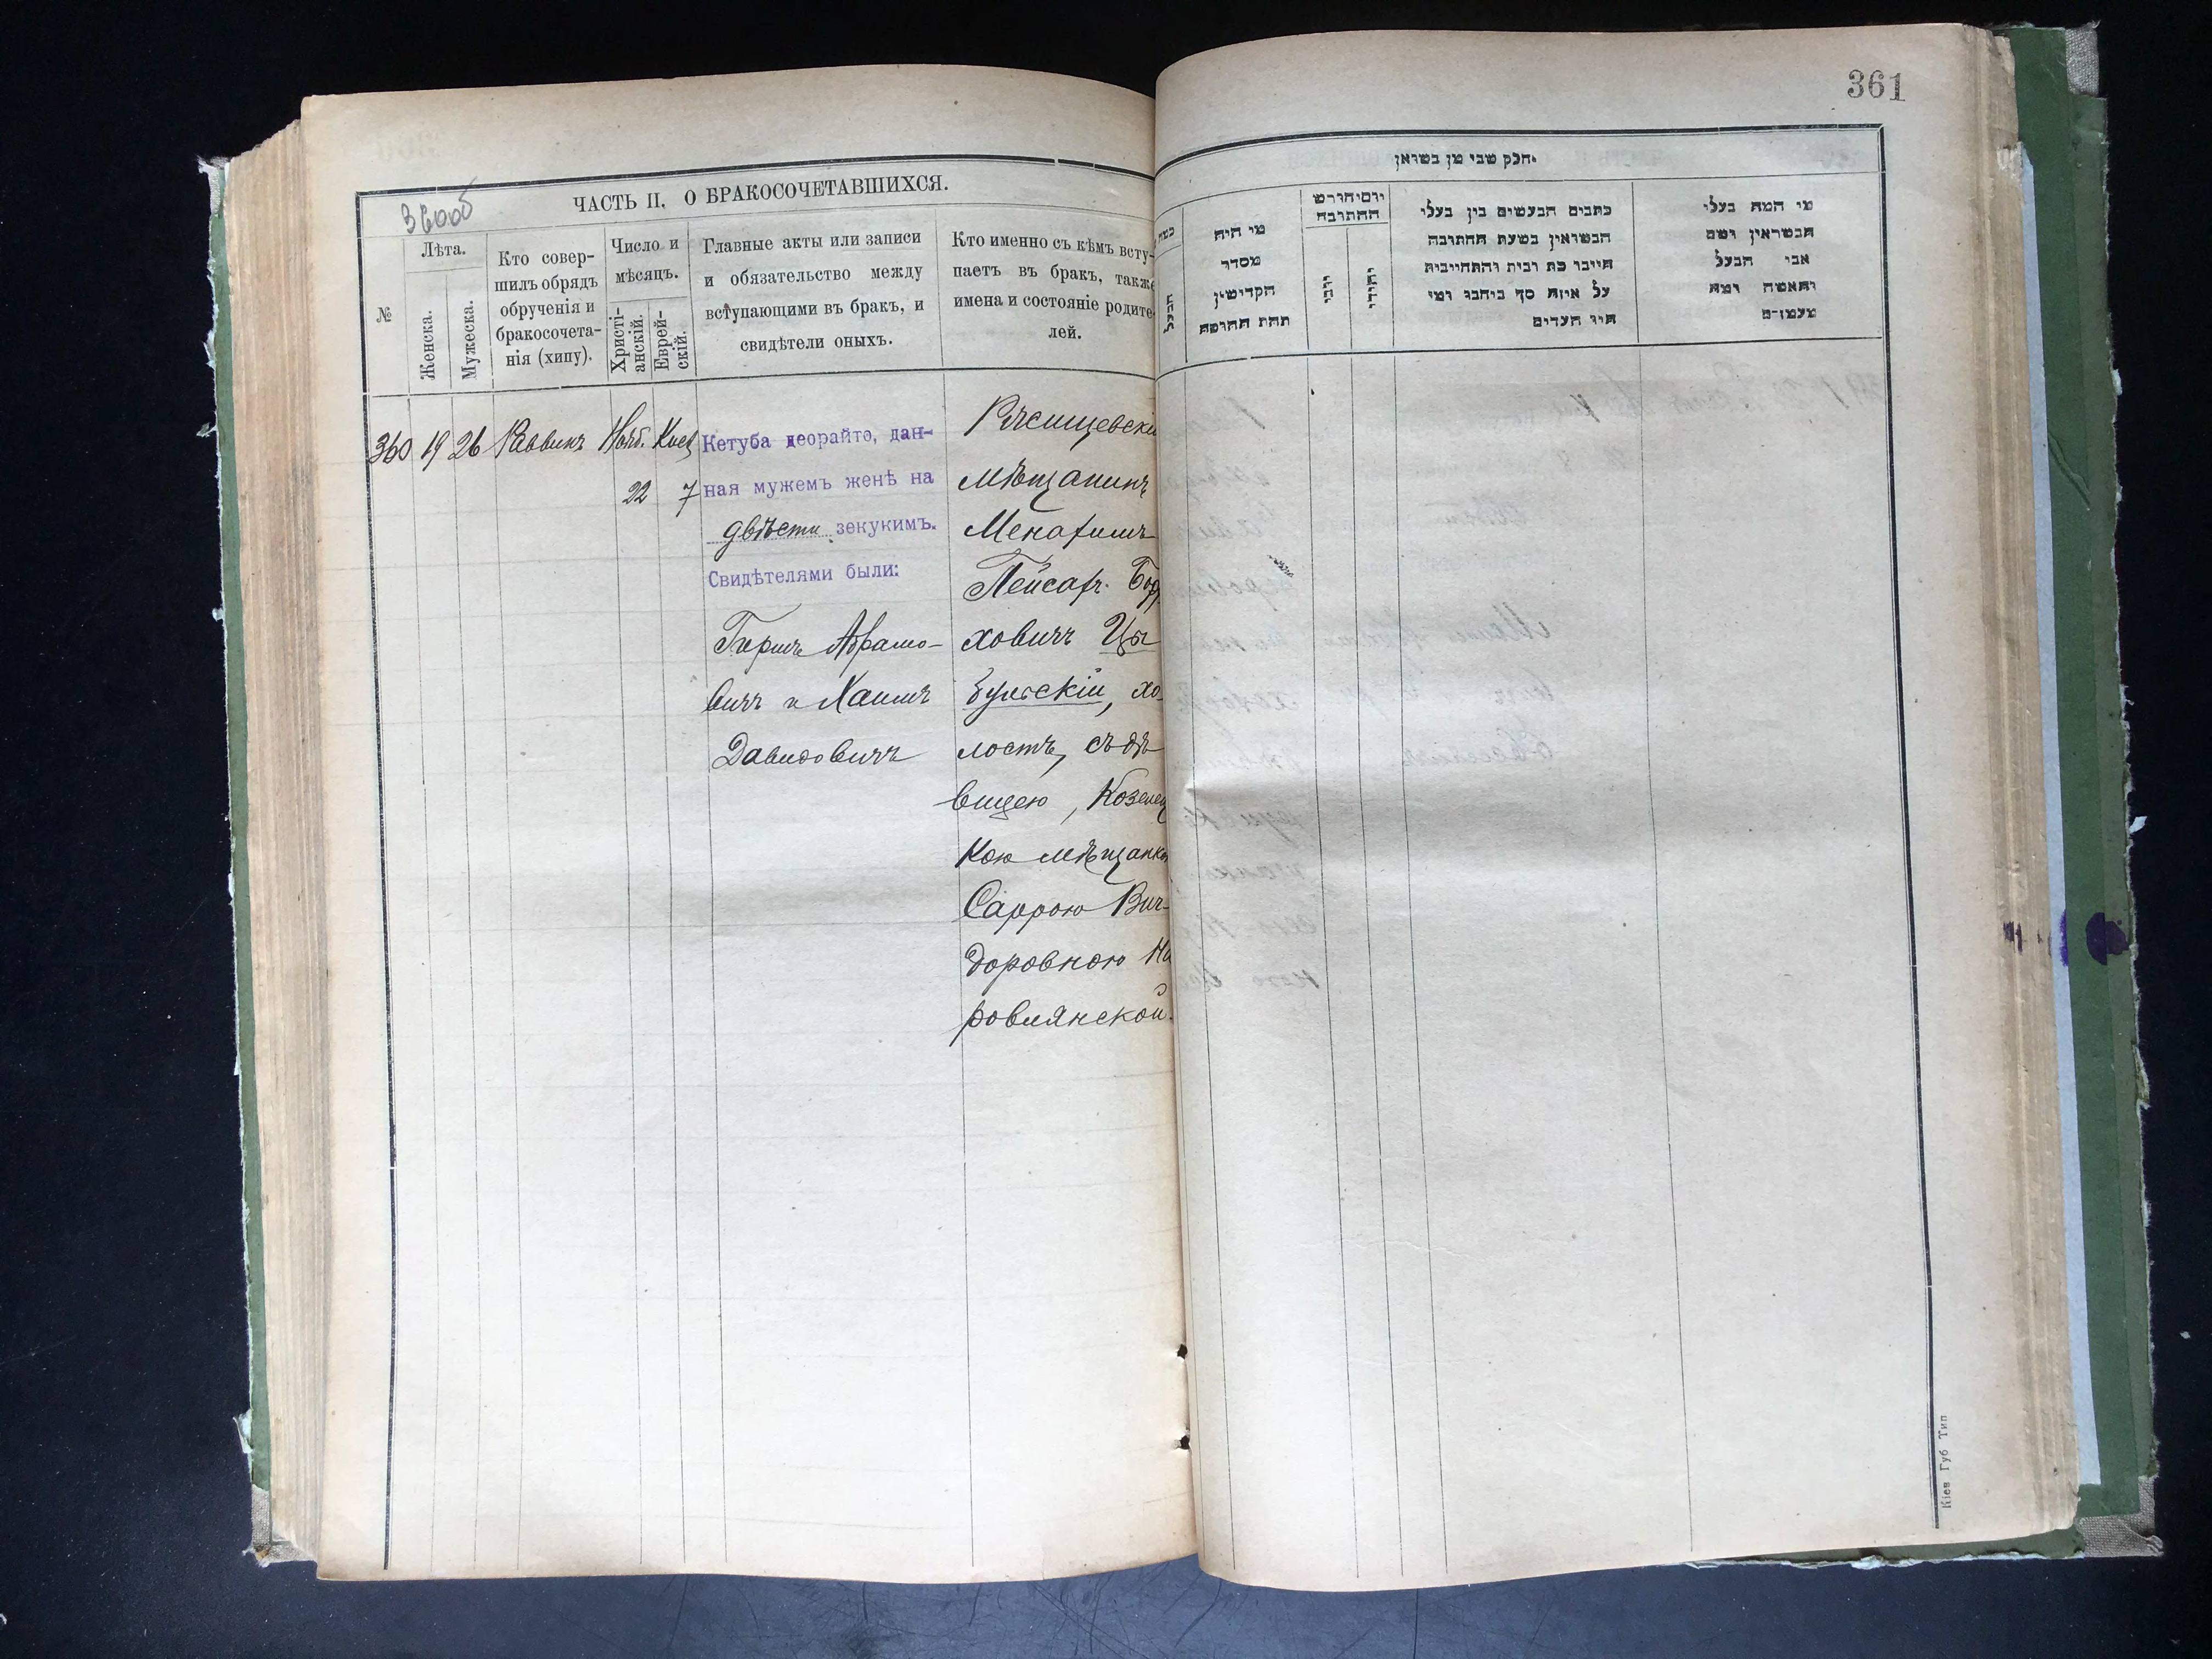 361
ЧАСТЬ II, О БРАКОСОЧЕТАВШИХСЯ.
№
Лѣта.
Женска.
Мужеска.
Кто совер-
шилъ обрядъ
обрученія и
бракосочета-
нія (хипу).
Число и
мѣсяцъ.
Христі-
анскій.
Еврей-
скій.
Главные акты или записи
и обязательство между
вступающими въ бракъ, и
свидѣтели оныхъ.
Кто именно съ кѣмъ всту-
паетъ въ бракъ, также
имена и состояніе родите-
лей.
360 19 26 Раввинъ Нояб. Кисл
22 7
Кетуба деорайто, дан-
ная мужемъ женѣ на
двѣсти зекукимъ.
Свидѣтелями были:
Гершъ Абрамо-
вичъ и Хаимъ
Давидовичъ
Рѣчищевскій
мѣщанинъ
Менахимъ
Пейсахъ Бор
ховичъ Цы
бульскій, хо-
лостъ, съ дѣ
вицею, Козелец
кою мѣщанкою
Саррою Виг-
доровною На
ровлянской.
חלק שני מן נשואין
מי היה
מסדר
הקדושין
תחת החופה
יום וחודש
החתונה
יוני
יהודי
כתבים הנעשים בין בעלי
הנשואין בשעת החתונה
חייבו כת ובית והתחייבות
על איזה סך ביחבו ומי
היו העדים
מי המה בעלי
הנשואין ושם
אבי הבעל
והאשה ומה
מעמדם
הבעל
Кіев Губ Тип